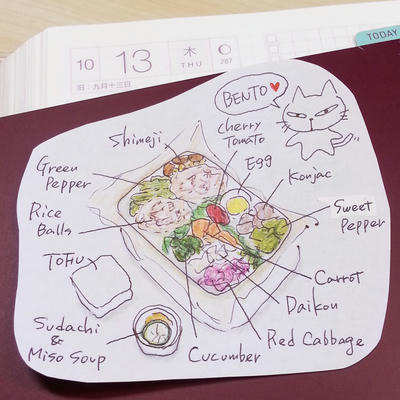 TODAY
10 13 木 THU 287
旧:九月十三日
BENTO
Shimeji
Cherry Tomato
Egg
Konjac
Green Pepper
Rice Balls
Sweet Pepper
Tofu
Carrot
Daikon
Sudachi & Miso Soup
Cucumber
Red Cabbage